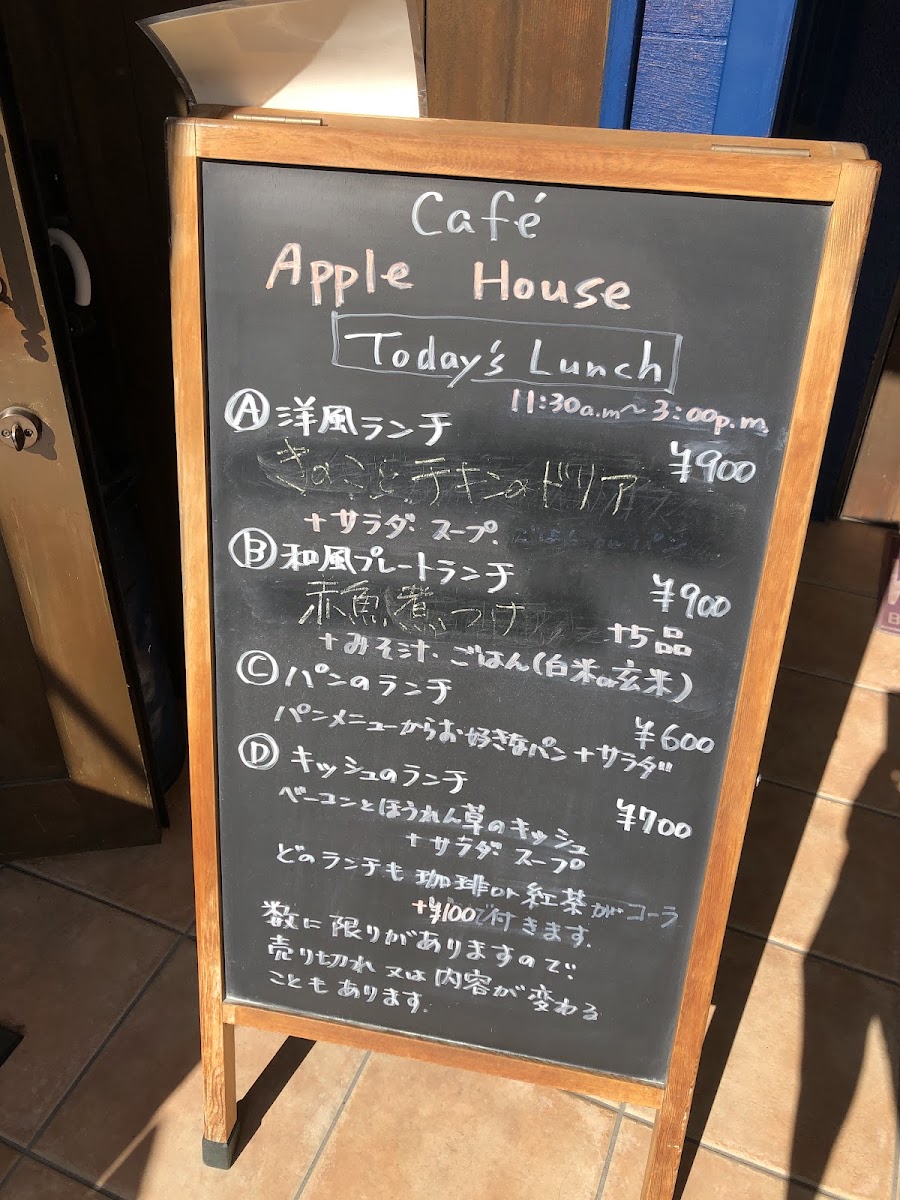 Café
Apple House
Today's Lunch
11:30a.m～3:00p.m
Ⓐ 洋風ランチ
¥900
きのことチキンのドリア
+サラダ・スープ
Ⓑ 和風プレートランチ
¥900
赤魚煮つけ
+5品
+みそ汁・ごはん(白米or玄米)
Ⓒ パンのランチ
¥600
パンメニューからお好きなパン+サラダ
Ⓓ キッシュのランチ
¥700
ベーコンとほうれん草のキッシュ
+サラダ・スープ
どのランチも珈琲or紅茶がコーラ
+¥100で付きます.
数に限りがありますので、
売り切れ又は内容が変わる
こともあります.